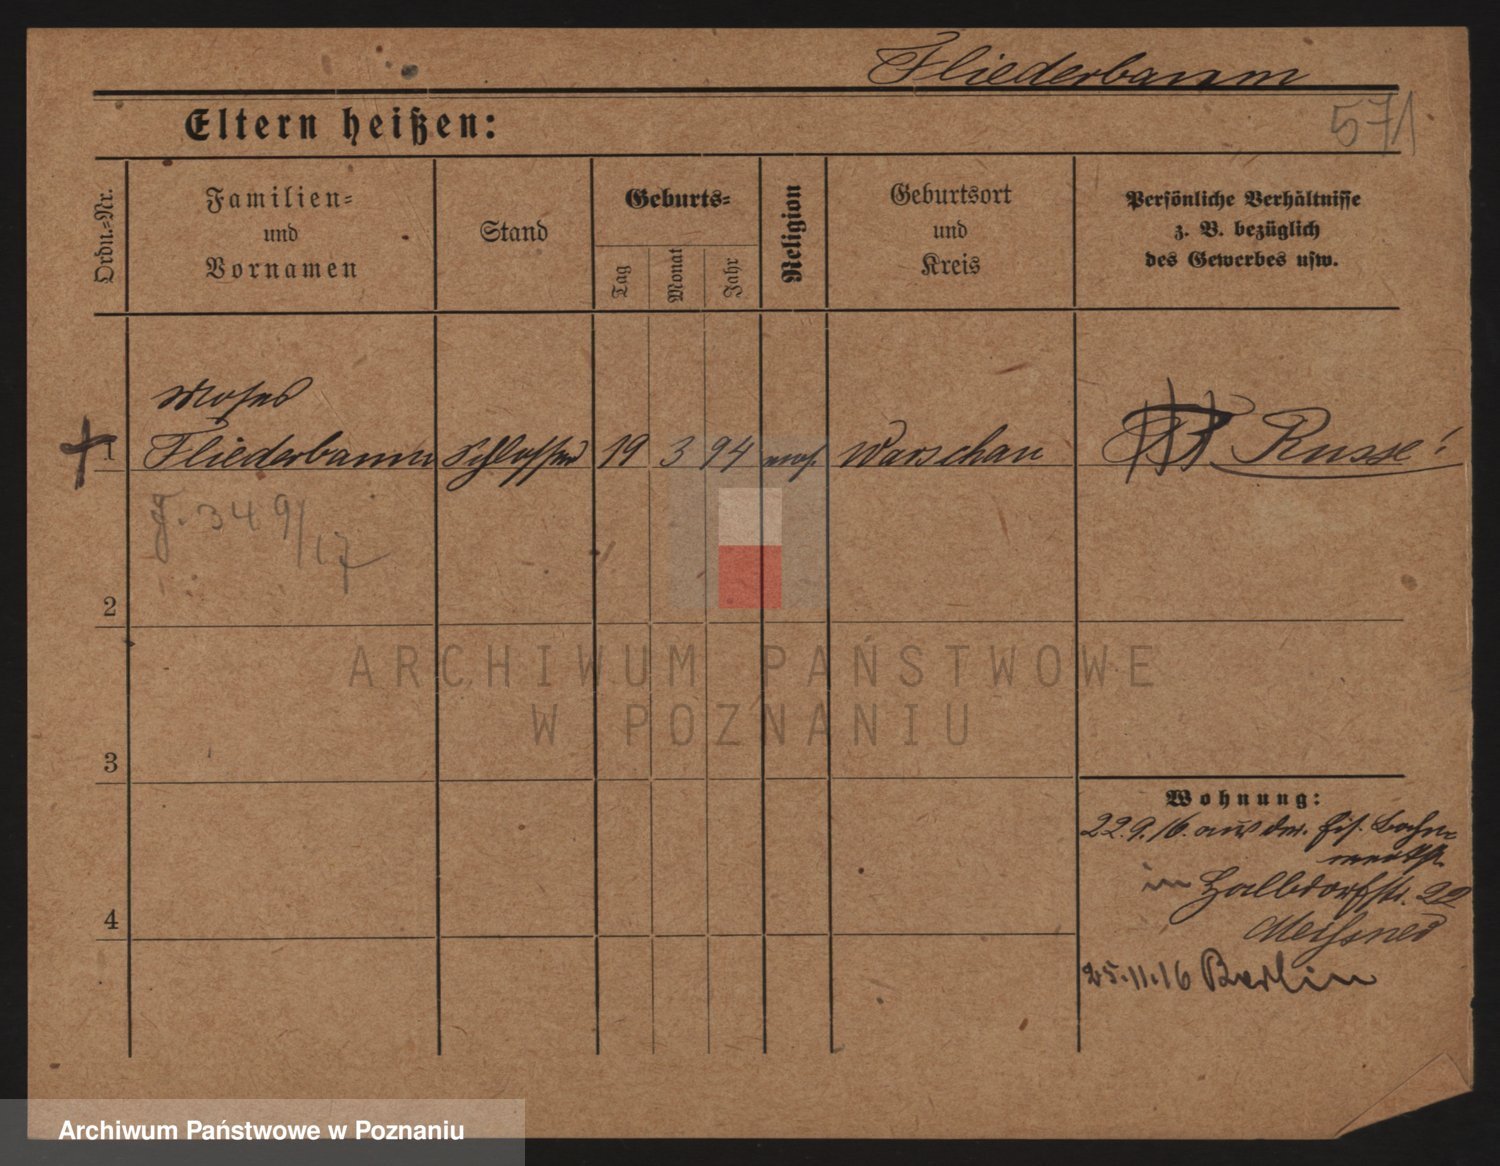 Fliederbaum
571
Eltern heißen:
Ordn.=Nr.
Familien=
und
Vornamen
Stand
Geburts=
Tag
Monat
Jahr
Religion
Geburtsort
und
Kreis
Persönliche Verhältnisse
z. B. bezüglich
des Gewerbes usw.
Moses
1 Fliederbaum Schlosser 19 3 94 mos. Warschau Russe!
J. 349/17
2
3
4
Wohnung:
22.9.16. aus der
in Halbdorfstr. 22
Meissner
25.11.16 Berlin
ARCHIWUM PAŃSTWOWE
W POZNANIU
Archiwum Państwowe w Poznaniu